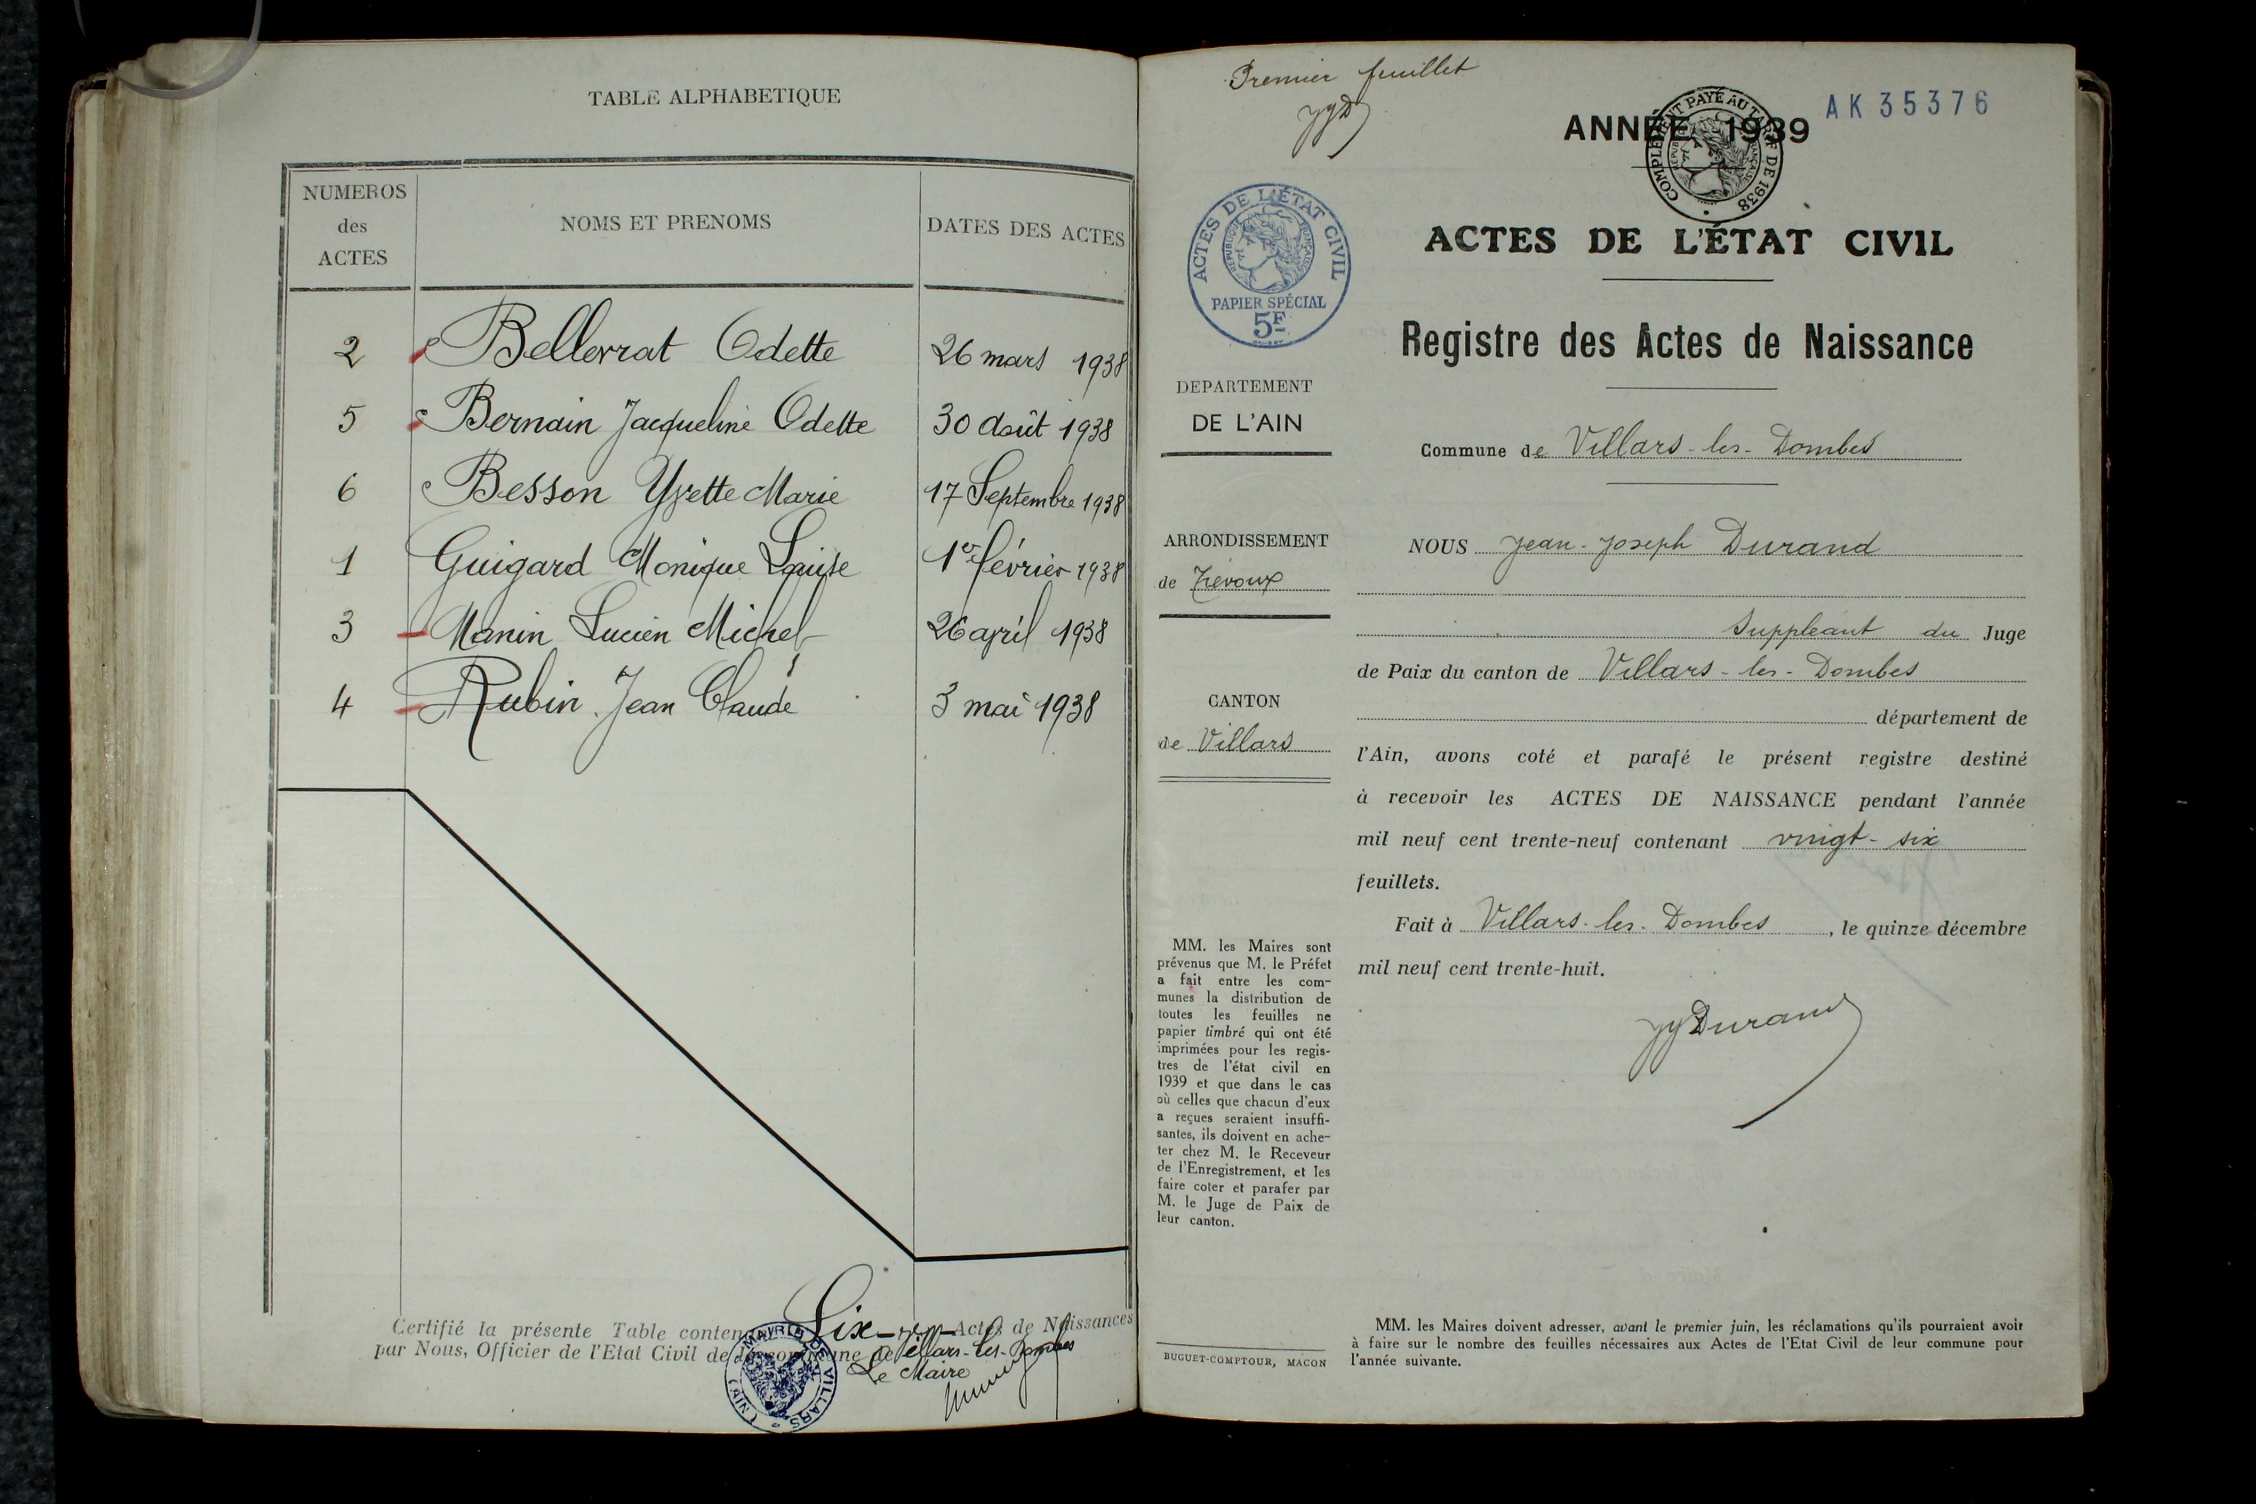 TABLE ALPHABETIQUE
NUMEROS des ACTES
NOMS ET PRENOMS
DATES DES ACTES
2 Bellerrat Odette 26 mars 1938
5 Bernain Jacqueline Odette 30 Août 1938
6 Besson Yvette Marie 17 Septembre 1938
1 Guigard Monique Louise 1er février 1938
3 Manin Lucien Michel 26 april 1938
4 Rubin Jean Claude 3 mai 1938
Certifié la présente Table conten Six Actes de Naissances
par Nous, Officier de l'Etat Civil de la commune de Villars-les-Dombes
Le Maire
MAIRIE DE VILLARS (AIN)
Premier feuillet
JJD
ANNÉE 1939
AK 35376
COMPLÉMENT PAYÉ AU TARIF DE 1938
RÉPUBLIQUE FRANÇAISE
ACTES DE L'ÉTAT CIVIL
RÉPUBLIQUE FRANÇAISE
PAPIER SPÉCIAL
5F
DEPARTEMENT
DE L'AIN
ARRONDISSEMENT
de Trévoux
CANTON
de Villars
MM. les Maires sont
prévenus que M. le Préfet
a fait entre les com-
munes la distribution de
toutes les feuilles ne
papier timbré qui ont été
imprimées pour les regis-
tres de l'état civil en
1939 et que dans le cas
où celles que chacun d'eux
a reçues seraient insuffi-
santes, ils doivent en ache-
ter chez M. le Receveur
de l'Enregistrement, et les
faire coter et parafer par
M. le Juge de Paix de
leur canton.
BUGUET-COMPTOUR, MACON
ACTES DE L'ÉTAT CIVIL
Registre des Actes de Naissance
Commune de Villars-les-Dombes
NOUS Jean-Joseph Durand
Suppléant du Juge
de Paix du canton de Villars-les-Dombes
département de
l'Ain, avons coté et parafé le présent registre destiné
à recevoir les ACTES DE NAISSANCE pendant l'année
mil neuf cent trente-neuf contenant vingt-six
feuillets.
Fait à Villars-les-Dombes, le quinze décembre
mil neuf cent trente-huit.
JJDurand
MM. les Maires doivent adresser, avant le premier juin, les réclamations qu'ils pourraient avoir
à faire sur le nombre des feuilles nécessaires aux Actes de l'Etat Civil de leur commune pour
l'année suivante.